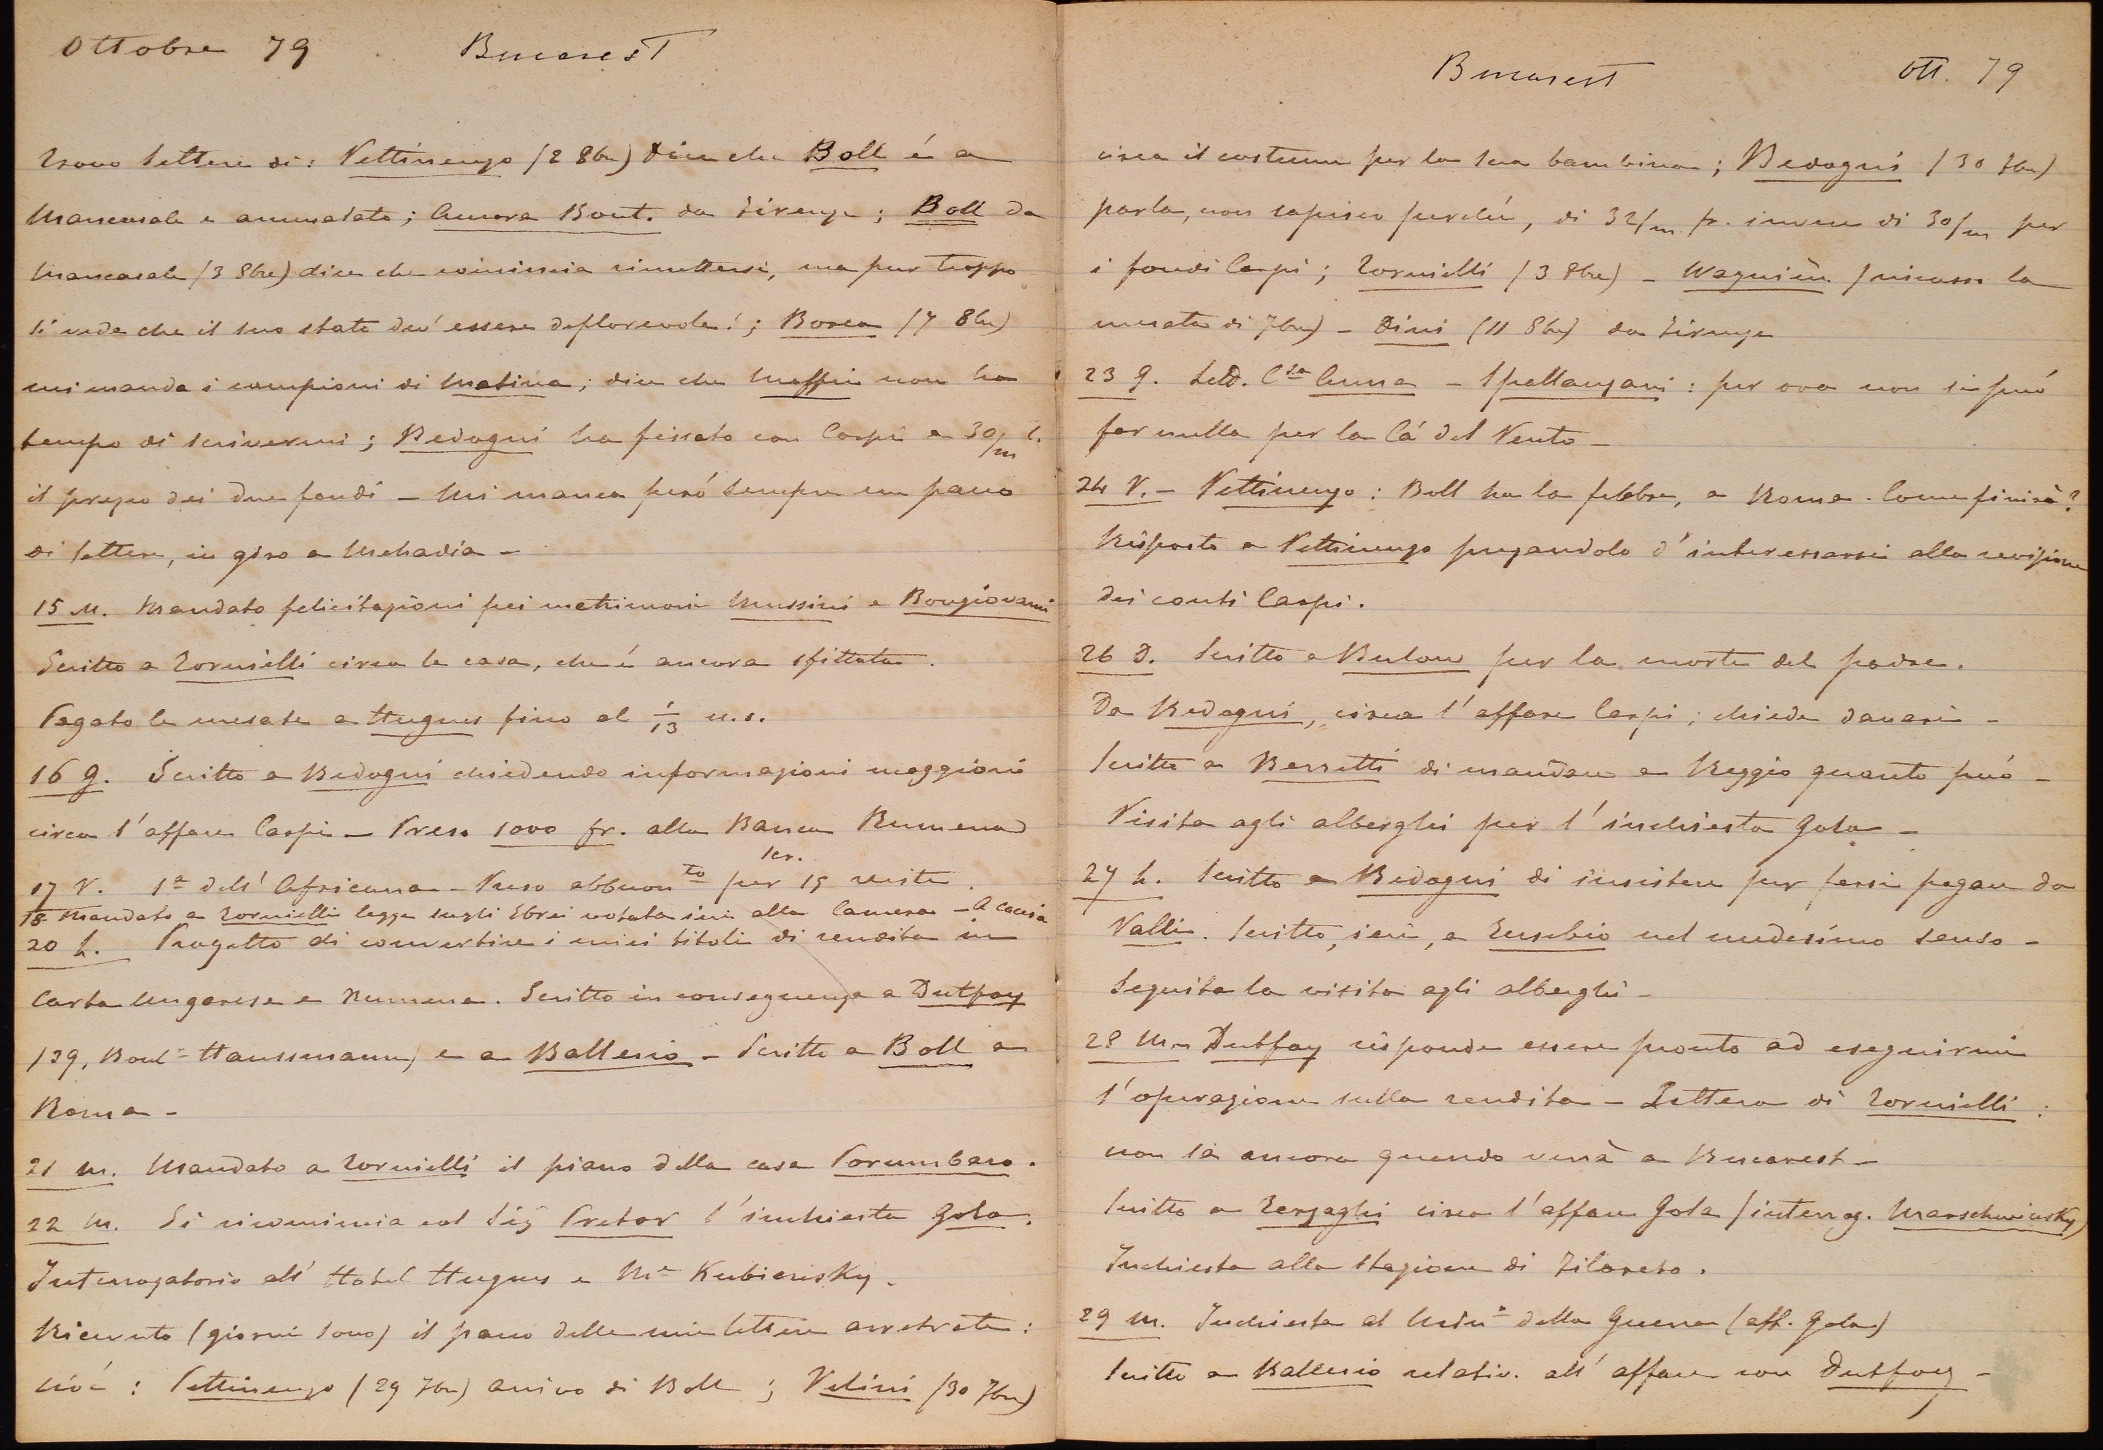 Ottobre 79 Bucarest
Trovo lettere di: Vettinengo (2 8bre) dice che Boll é a
Mancasale e ammalato; Amora Bout. da Firenze; Boll da
Mancasale (3 8bre) dice che comincia rimettersi, ma pur troppo
si vede che il suo stato dev' essere deplorevole!; Borea (7 8bre)
mi manda i campioni di Matina; dice che Maffei non ha
tempo di scrivermi; Bedogni ha fissato con Carpi a 30/m l.
il prezzo dei due fondi – Mi manca peró sempre un pacco
di lettere, in giro a Mehadia –
15 M. Mandato felicitazioni pei matrimoni Mussini e Bongiovanni
Scritto a Tornielli circa la casa, che é ancora sfittata.
Pagato le mesate a Hugues fino al 1/13 u.s.
16 G. Scritto a Bedogni chiedendo informazioni maggiori
circa l'affare Carpi – Preso 1000 fr. alla Banca Rumena
17 V. 1a dell' Africana – Preso abbuonto per 15 recite. scr.
18 Mandato a Tornielli legge sugli Ebrei votata ieri alla Camera – A caccia
20 L. Progetto di convertire i miei titoli di rendita in
Carta Ungarese e Rumena. Scritto in conseguenza a Dutfoy
(39, Boul. Haussmann) e a Ballerio – Scritto a Boll a
Roma –
21 M. Mandato a Tornielli il piano della casa Porumbaro.
22 M. Si ricomincia col Sig Pretor l'inchiesta Gola.
Interrogatorio all' Hotel Hugues e Mr Kubieriski.
Ricevuto (giorni sono) il pacco delle mie lettere arretrate:
cioé: Pettinengo (29 7bre) arrivo di Boll; Velini (30 7bre)
Bucarest Ott. 79
circa il costume per la sua bambina; Bedogni (30 7bre)
parla, non capisco perché, di 32/m fr. invece di 30/m per
i fondi Carpi; Tornielli (3 8bre) – Wagnière (riscosse la
mesata di 7bre) – Dini (11 8bre) da Firenze
23 G. Led. Csa Anna – Spallanzani: per ora non si puó
far nulla per la Cá del Vento –
24 V. – Vettinengo: Boll ha la febbre, a Roma. Come finirà?
Risposto a Vettinengo pregandolo d'interessarsi alla revisione
dei conti Carpi.
26 D. Scritto a Bulow per la morte del padre.
Da Bedogni, circa l'affare Carpi; chiede danari –
Scritto a Berretti di mandare a Reggio quanto può –
Visita agli alberghi per l'inchiesta Gola –
27 L. Scritto a Bedogni di insistere per farsi pagare da
Valli. Scritto, ieri, a Eusebio nel medesimo senso –
Seguita la visita agli alberghi –
28 M. Dutfoy risponde essere pronto ad eseguirmi
l'operazione sulla rendita – Lettera di Tornielli:
non sa ancora quando verrà a Bucarest –
Scritto a Terzaghi circa l'affare Gola (interrog. Marschwinsky)
Inchiesta alla Stazione di Filareto.
29 M. Inchiesta al Minro della Guerra (aff. Gola)
Scritto a Ballerio relativ. all' affare con Dutfoy –